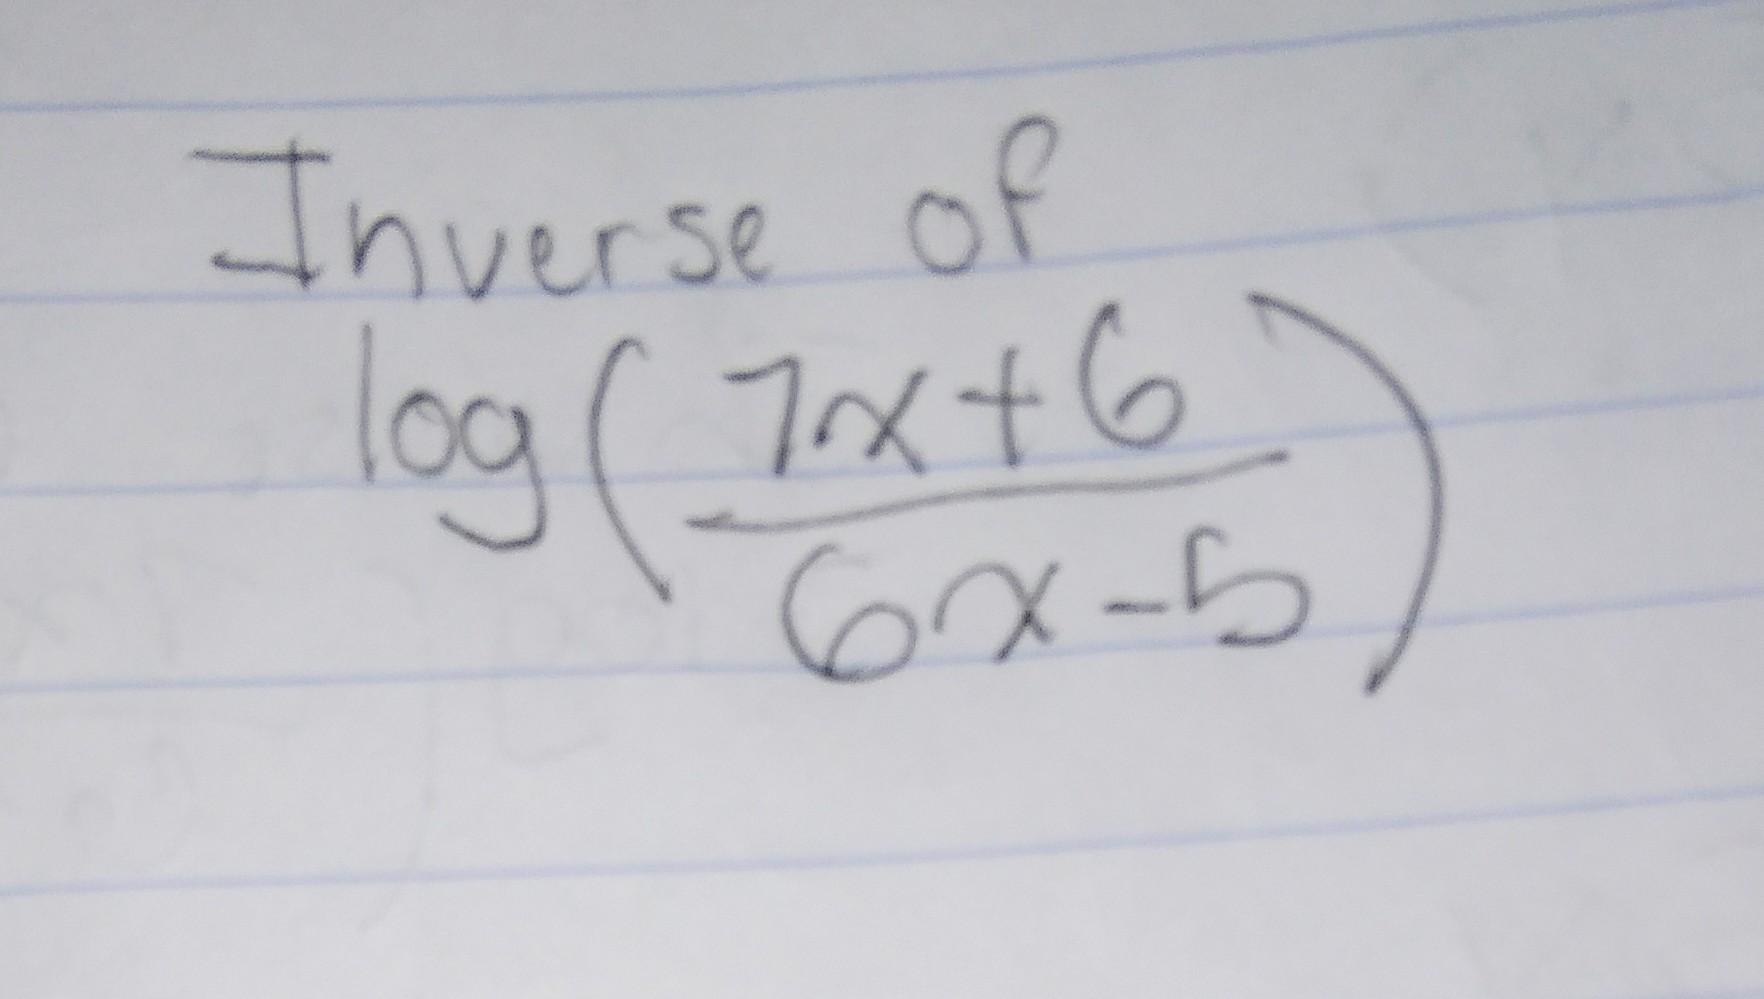 Inverse of
log(7x+6/6x-5)